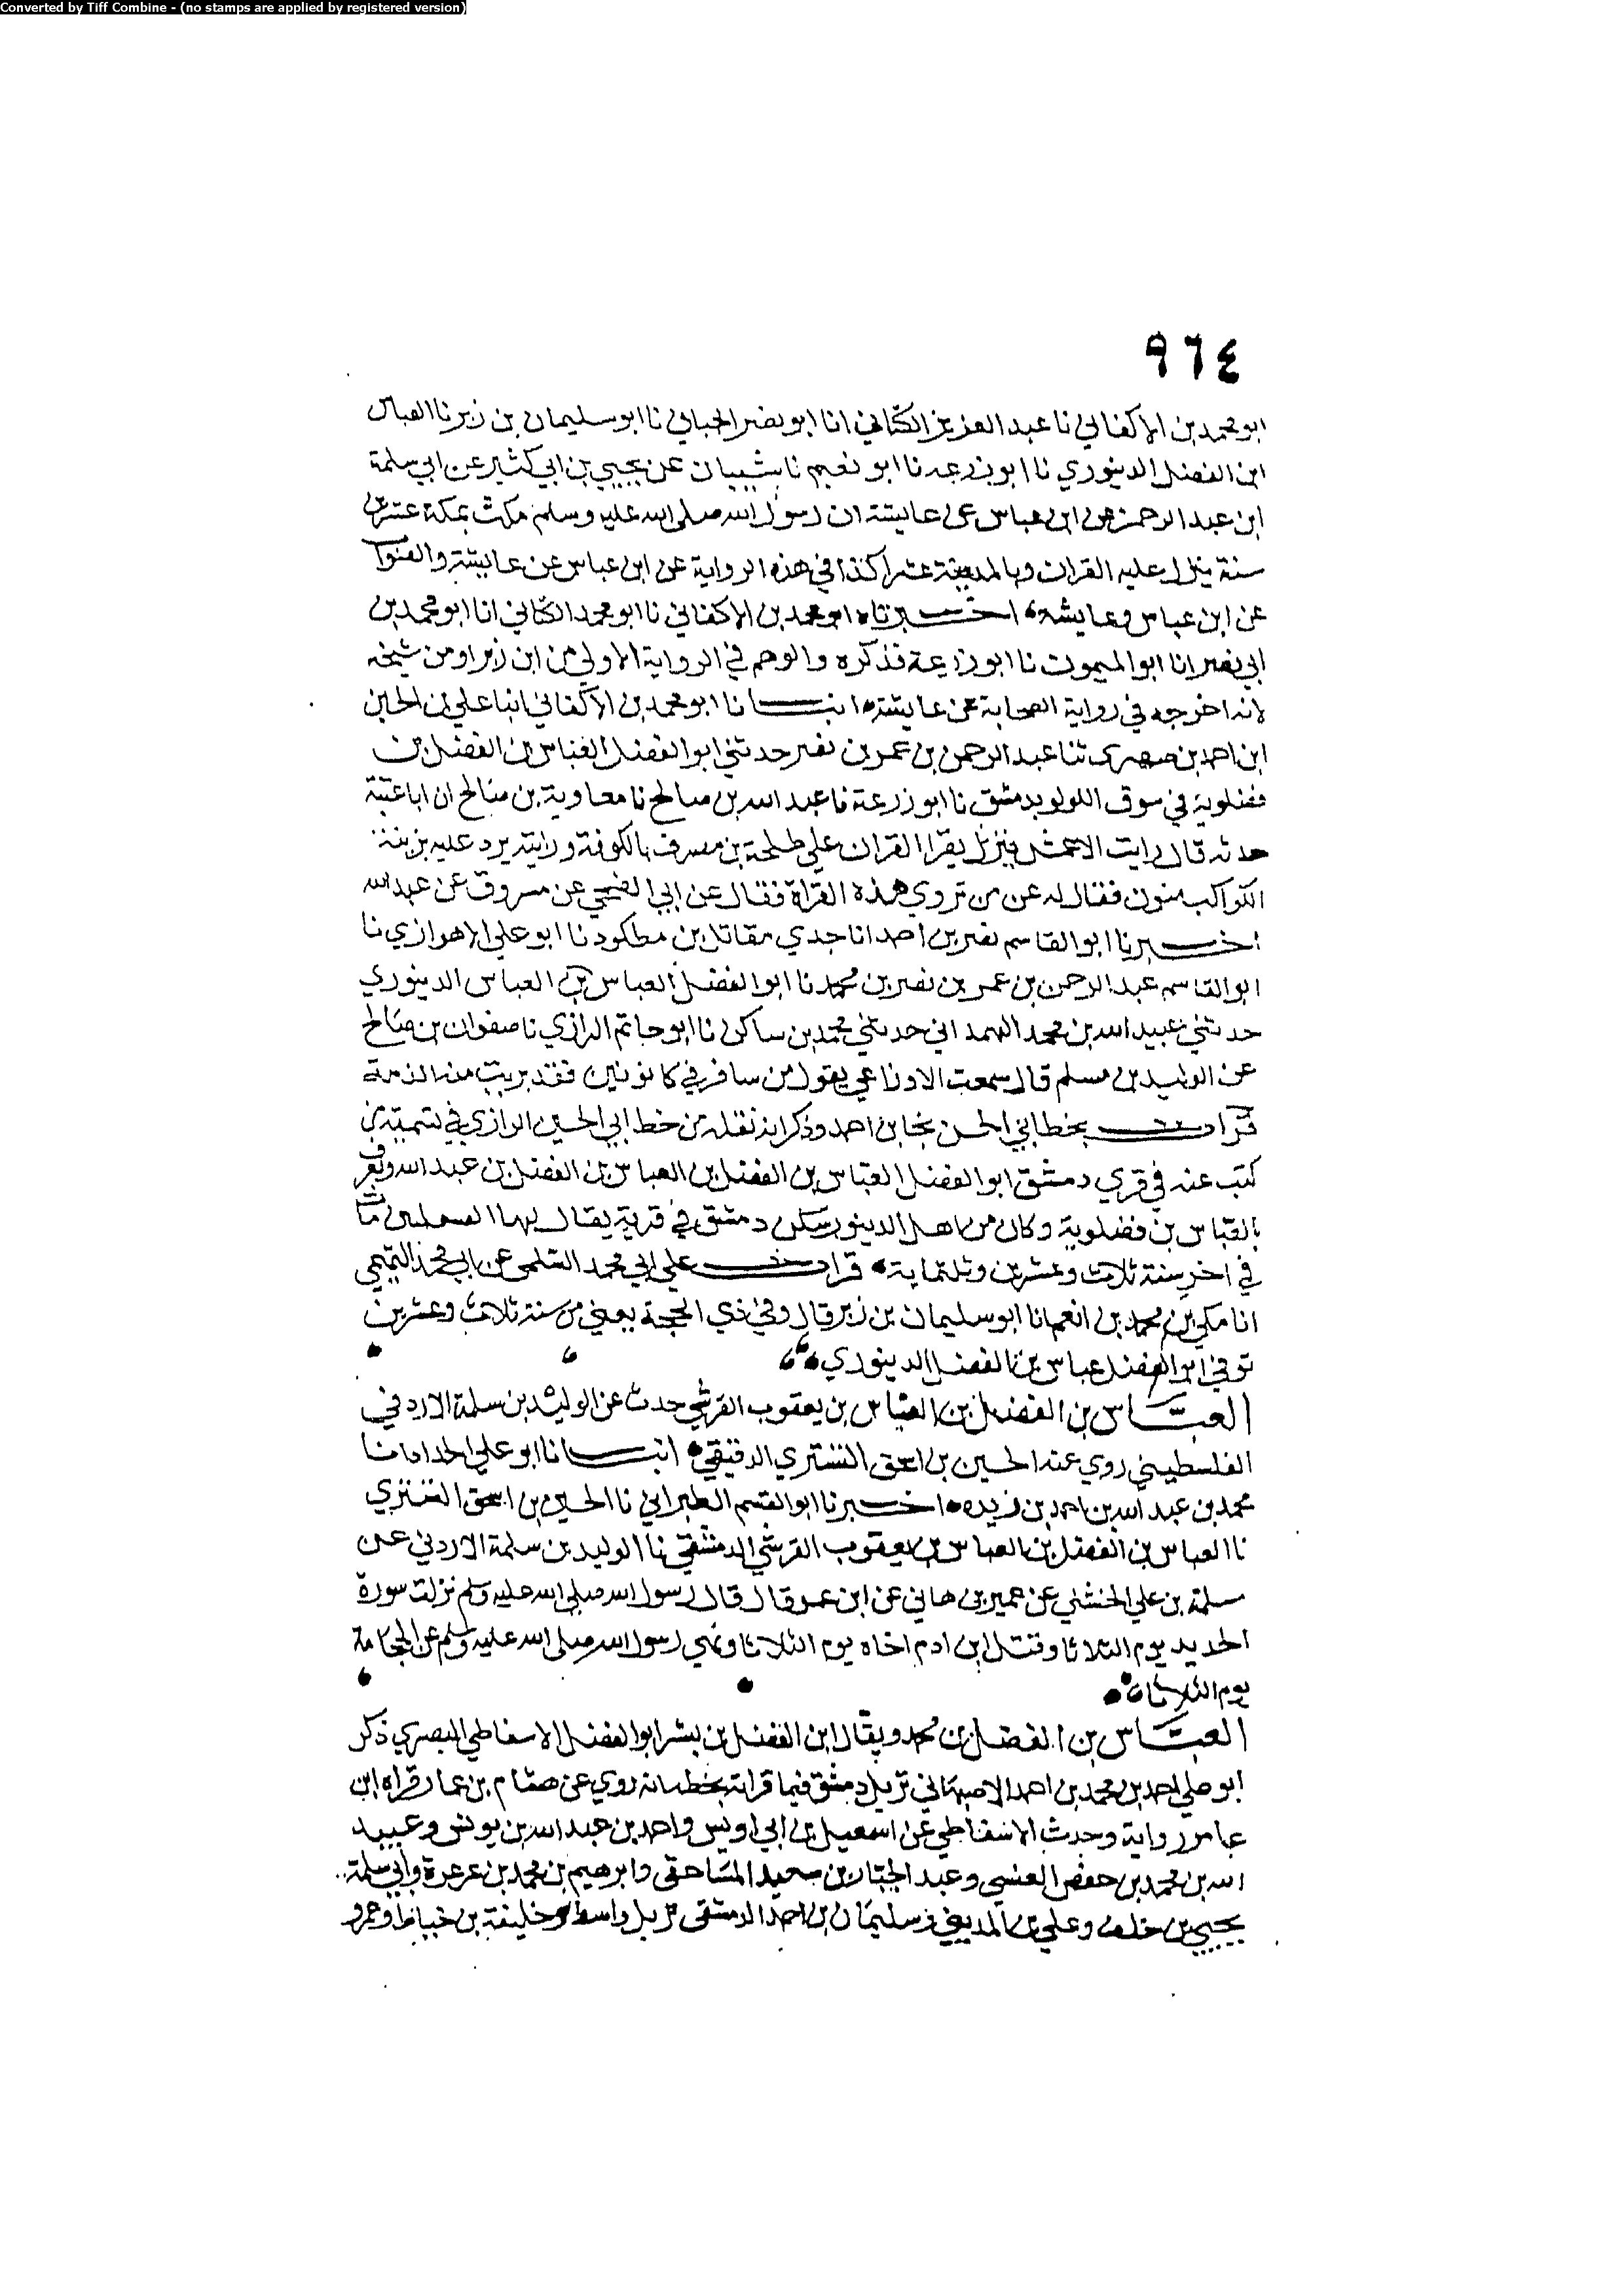 Converted by Tiff Combine - (no stamps are applied by registered version)
٩٦٤
ابو محمد بن الاكفاني نا عبد العزيز الكتاني انا ابو نصر الجبان نا ابو سليمان بن زبر نا العباس
ابن الفضل الدينوري نا ابو زرعه نا ابو نعيم نا شيبان عن يحيي بن ابي كثير عن ابي سلمة
ابن عبد الرحمن عن ابن عباس عن عايشة ان رسول الله صلى الله عليه وسلم مكث بمكة عشرين
سنة ينزل عليه القران وبالمدينة عشرا كذا في هذه الرواية عن ابن عباس عن عايشة والصواب
عن ابن عباس وعايشة اخبرناه ابو محمد بن الاكفاني نا ابو محمد الكتاني انا ابو محمد بن
ابي نصر انا ابو الميمون نا ابو زرعة فذكره والوهم في الرواية الاولي من ابن زبر او من شيخه
لانه اخرجه في رواية الصحابة عن عايشة انبانا ابو محمد بن الاكفاني انبا علي بن الحسين
ابن احمد بن صصري ثنا عبد الرحمن بن عمر بن نصر حدثني ابو الفضل العباس بن الفضل بن
فضلوية في سوق اللولو بدمشق نا ابو زرعة نا عبد الله بن صالح نا معاوية بن صالح ان ابا عتبة
حدثه قال رايت الاعمش يقرا القران علي طلحة بن مصرف بالكوفة ورايته يرد عليه بزينة
الكواكب منون فقال له عن من تروي هذه القراة فقال عن ابي الضحي عن مسروق عن عبد الله
اخبرنا ابو القاسم نصر بن احمد انا جدي مقاتل بن مطكود نا ابو علي الاهوازي نا
ابو القاسم عبد الرحمن بن عمر بن نصر بن محمد نا ابو الفضل العباس بن العباس الدينوري
حدثني عبيد الله بن محمد الهمداني حدثني محمد بن ساكن نا ابو حاتم الرازي نا صفوان بن صالح
عن الوليد بن مسلم قال سمعت الاوزاعي يقول من سافر في كانونين فقد بريت منه الذمة
قرات بخط ابي الحسن نجا بن احمد وذكر انه نقله من خط ابي الحسين الرازي في تسمية من
كتب عنه في قري دمشق ابو الفضل العباس بن الفضل بن العباس بن الفضل بن عبد الله ويعرف
بالعباس بن فضلوية وكان من اهل الدينور سكن دمشق في قرية يقال لها مات
في اخر سنة ثلاث وعشرين وثلثماية قرات علي ابي محمد السلمي عن ابي محمد التميمي
انا مكي بن محمد بن الغمر انا ابو سليمان بن زبر قال وفي ذي الحجة يعني من سنة ثلاث وعشرين
توفي ابو الفضل عباس بن الفضل الدينوري
العباس بن الفضل بن العباس بن يعقوب القرشي حدث عن الوليد بن سلمة الاردني
الفلسطيني روي عنه الحسين بن اسحق التستري الدقيقي انبانا ابو علي الحداد انا
محمد بن عبد الله بن احمد بن زيده اخبرنا ابو القسم الطبراني نا الحسين بن اسحق التستري
نا العباس بن الفضل بن العباس بن يعقوب القرشي الدمشقي نا الوليد بن سلمة الاردني عن
سلمة بن علي الخشني عن عمير بن هاني عن ابن عمر قال قال رسول الله صلى الله عليه وسلم نزلت سورة
الحديد يوم الثلاثا وقتل ابن ادم اخاه يوم الثلاثا ونهي رسول الله صلى الله عليه وسلم عن الحجامة
يوم الثلاثا
العباس بن الفضل بن محمد ويقال ابن الفضل بن بشر ابو الفضل الاسفاطي البصري ذكر
ابو علي احمد بن محمد بن احمد الاصبهاني نزيل دمشق فيما قراته بخطه انه روي عن هشام بن عمار قراه ابن
عامر رواية وحدث الاسفاطي عن اسمعيل بن ابي اويس واحمد بن عبد الله بن يونس وعبيد
الله بن محمد بن حفص العيشي وعبد الجبار بن سعيد المساحقي وابرهيم بن محمد بن عرعرة وابي سلمة
يحيي بن خلف وعلي بن المديني وسليمان بن احمد الدمشقي نزيل واسط وخليفة بن خياط وعمرو